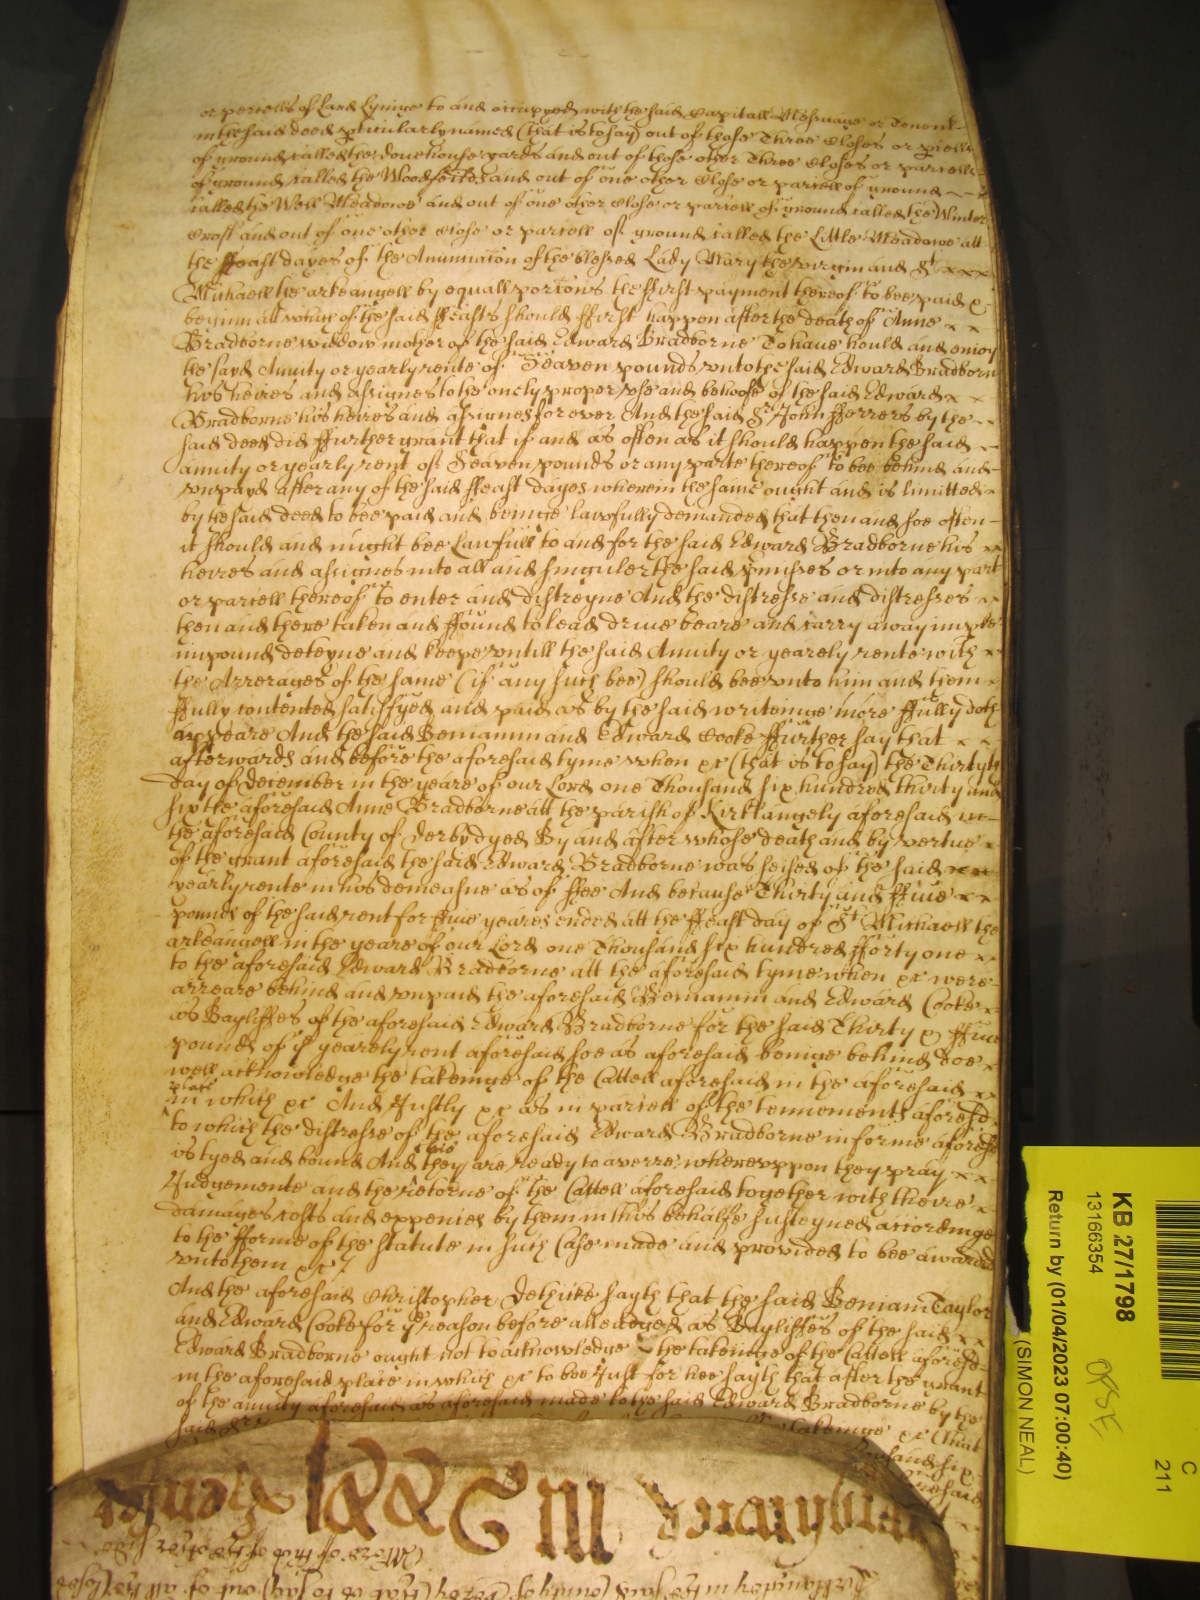 or parcells of Land Lyinge to and occupyed with the said Capitall Messuage or Tenemt
in the said deed pticularly named (that is to say) out of those Three Closes or pcells
of ground called the dovehouse yards and out of those other Three Closes or parcells
of ground called the Woodfeilds and out of one other Close or parcell of ground
called the Well Meadowe and out of one other Close or parcell of ground called the Winter
Croft and out of one other Close or parcell of ground called the Little Meadowe att
the ffeast dayes of the Anunciacon of the blessed Lady Mary the virgin and St
Michaell the arkeangell by equall porcons the ffirst payment thereof to bee paid &
beginn att which of the said ffeasts should ffirst happen after the death of Anne
Bradborne widdow mother of the said Edward Bradborne To have hould and enioy
the sayd Anuity or yearly rente of Seaven pounds vnto the said Edward Bradborn
his heires and assignes to the onely proper vse and behoofe of the said Edward
Bradborne his heires and assignes for ever And the said Sr John fferrers by the
said deed did ffurther grant that if and as often as it should happen the said
annuity or yearly rent of Seaven pounds or any parte thereof to bee behind and
vnpayd after any of the said ffeast dayes wherein the same ought and is limitted
by the said deed to bee paid and beinge lawfully demanded that then and soe often
it should and might bee Lawfull to and for the said Edward Bradborne his
heires and assignes into all and singuler the said pmisses or into any part
or parcell thereof to enter and distreyne And the distresse and distresses
then and there taken and ffound to lead drive beare and carry away imparke
impound deteyne and keepe vntill the said Anuity or yearely rente with
the Arrerages of the same (if any such bee) should bee vnto him and them
ffully contented satisfyed and paid as by the said writeinge more ffully doth
appeare And the said Beniamin and Edward Cooke ffurther say that
afterwards and before the aforesaid tyme when &c (that is to say) the Thirtyth
day of December in the yeare of our Lord one Thousand six hundred thirty and
six the aforesaid Anne Bradborne att the parish of Kirklangely aforesaid in
the aforesaid County of derby dyed By and after whose death and by vertue
of the grant aforesaid the said Edward Bradborne was seised of the said
yearly rente in his demeasne as of ffee And because Thirty and ffive
pounds of the said rent for ffive yeares ended att the ffeast day of St Michaell the
arkeangell in the yeare of our Lord one Thousand six hundred fforty one
to the aforesaid Edward Bradborne att the aforesaid tyme when &c were
arreare behind and vnpaid the aforesaid Beniamin and Edward Cooke
as Bayliffes of the aforesaid Edward Bradborne for the said Thirty & ffive
pounds of ye yearely rent aforesaid soe as aforesaid beinge behind doe
well acknowledge the takeinge of the Cattell aforesaid in the aforesaid
place
in which &c And Justly &c as in parcell of the tennements aforesd
to which the distresse of the aforesaid Edward Bradborne in forme aforesd
is tyed and bound And this they are ready to averre wherevppon they pray
Judgemente and the retorne of the Cattell aforesaid together with theire
damages costs and expences by them in this behalfe susteyned accordinge
to the fforme of the statute in such Case made and provided to bee awarded
vnto them &c
And the aforesaid Christopher Dethicke sayth that the said Beniam Taylor
and Edward Cooke for ye reason before alleadged as Bayliffes of the said
Edward Bradborne ought not to acknowledge the takeinge of the Cattell aforesd
in the aforesaid place in which &c to bee Just for hee sayth that after the grant
of the annuity aforesaid as aforesaid made to the said Edward Bradborne by the
said
takeinge &c (that
KB 27/1798
13166354
Return by (01/04/2023 07:00:40)
(SIMON NEAL)
C
211